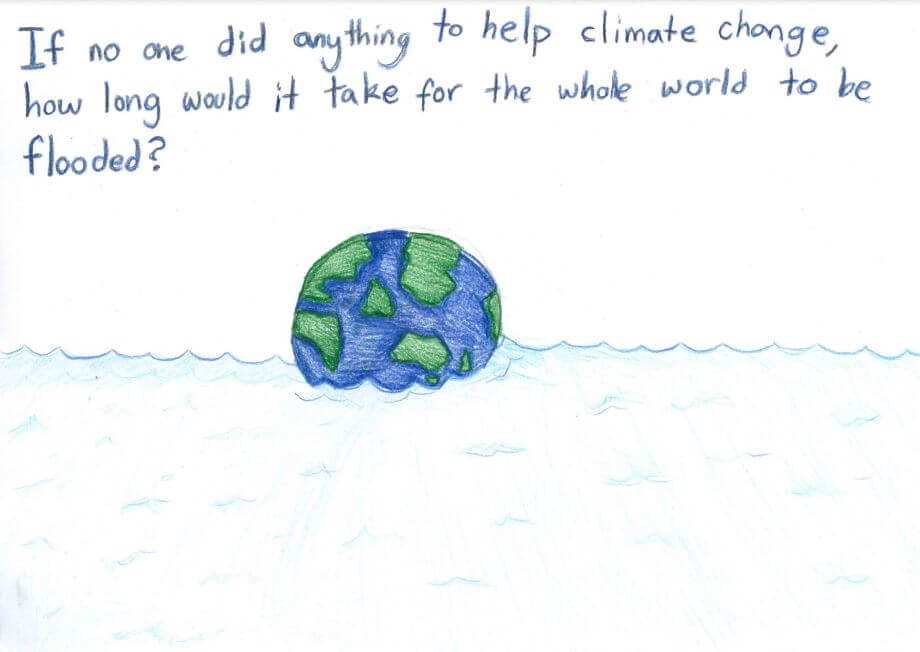 If no one did anything to help climate change,
how long would it take for the whole world to be
flooded?